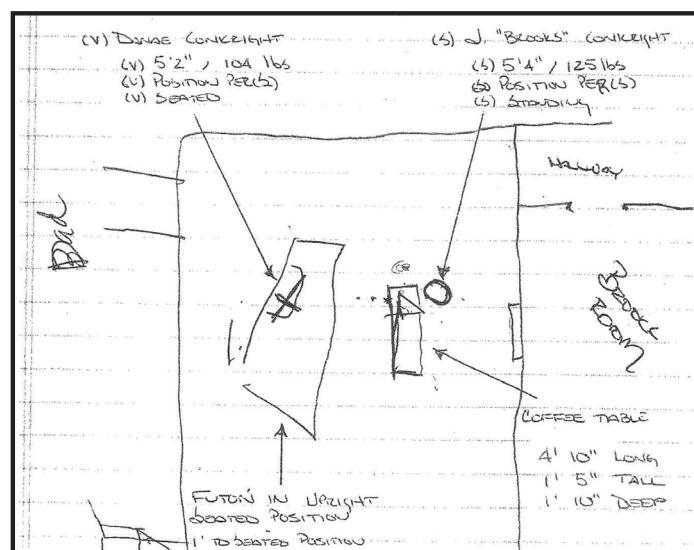 (V) DANAE CONKRIGHT
(V) 5'2" / 104 lbs
(V) POSITION PER(S)
(V) SEATED
(S) J. "BROOKS" CONKRIGHT
(S) 5'4" / 125 lbs
(S) POSITION PER(S)
(S) STANDING
HALLWAY
Dad
ROOM
COFFEE TABLE
4' 10" LONG
1' 5" TALL
1' 10" DEEP
FUTON IN UPRIGHT
SEATED POSITION
1' TO SEATED POSITION